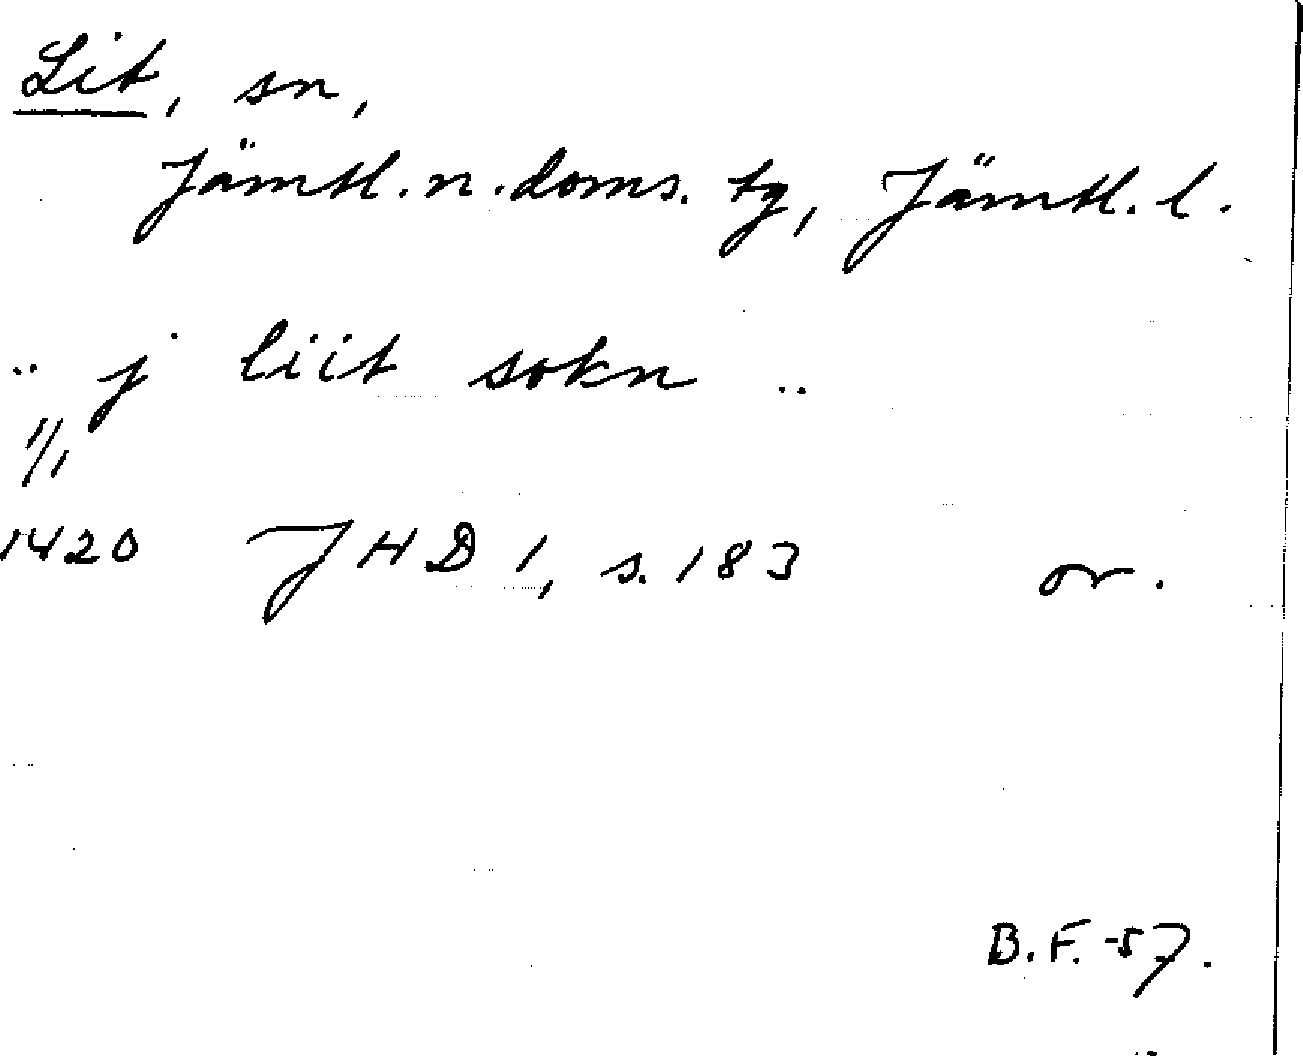 Lit, sn,
Jämtl. n. doms. tg, Jämtl. l.
.. j liit sokn ..
1/1
1420 JHD 1, s. 183 or.
B.F. -57.